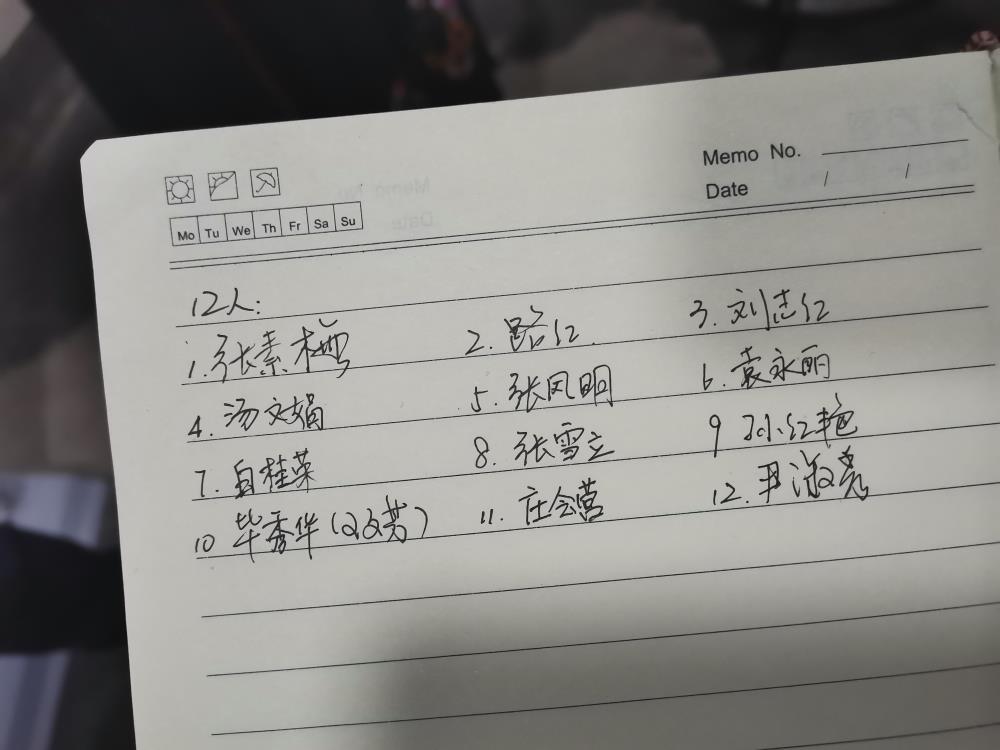 Memo No.
Date / /
Mo Tu We Th Fr Sa Su
12人:
1. 张素梅 2. 路红. 3. 刘志红
4. 汤文娟 5. 张凤明 6. 袁永丽
7. 白桂荣 8. 张雪立 9 孙红艳
10 毕秀华( 11. 庄会营 12. 尹淑亮